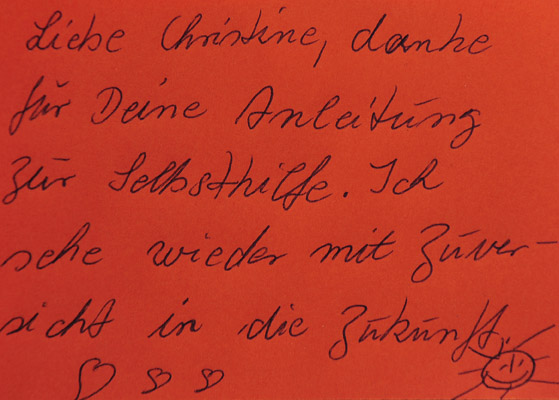 Liebe Christine, danke
für Deine Anleitung
zur Selbsthilfe. Ich
sehe wieder mit Zuver-
sicht in die Zukunft.